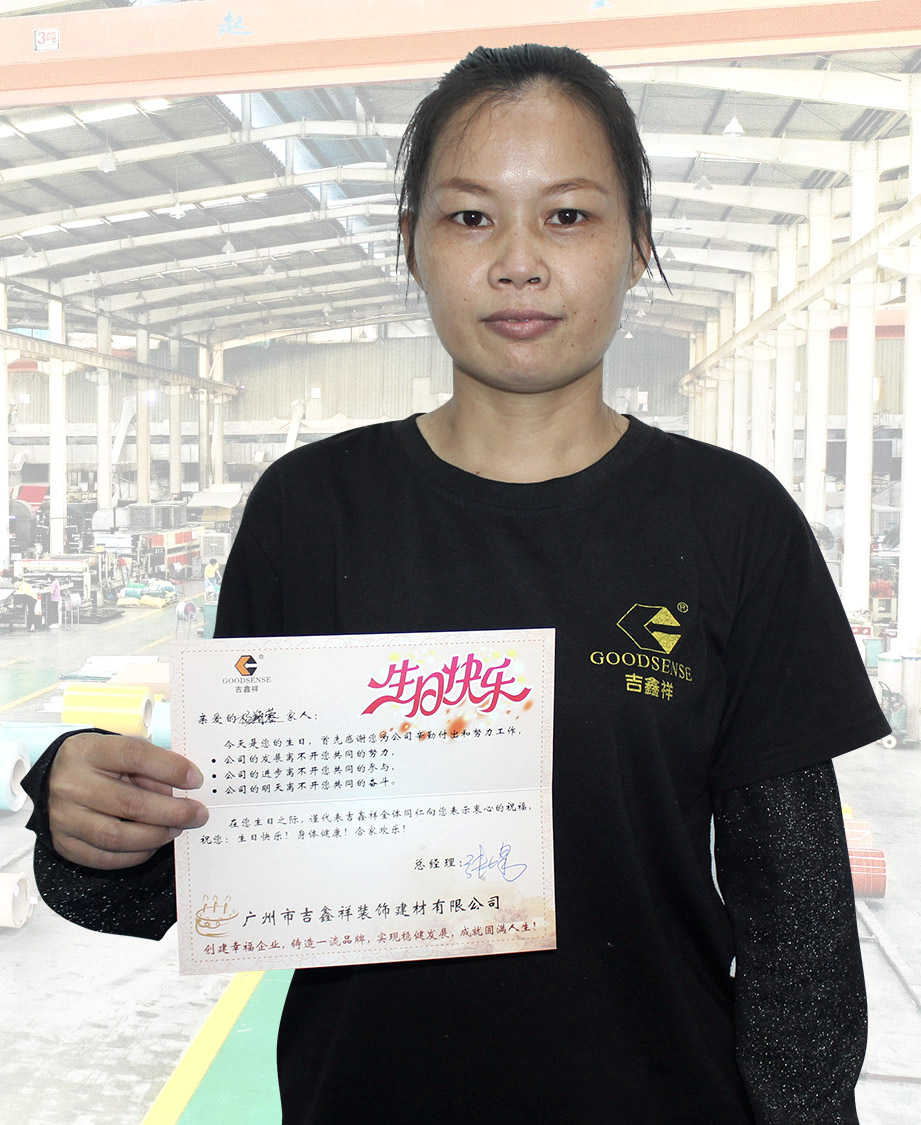 3吨
起
®
GOODSENSE
吉鑫祥
®
GOODSENSE
吉鑫祥
生日快乐
亲爱的 家人：
今天是您的生日，首先感谢您为公司辛勤付出和努力工作，
• 公司的发展离不开您共同的努力，
• 公司的进步离不开您共同的参与，
• 公司的明天离不开您共同的奋斗。
在您生日之际，谨代表吉鑫祥全体同仁向您表示衷心的祝福，
祝您：生日快乐！身体健康！合家欢乐！
总经理：
广州市吉鑫祥装饰建材有限公司
创建幸福企业，铸造一流品牌，实现稳健发展，成就圆满人生！